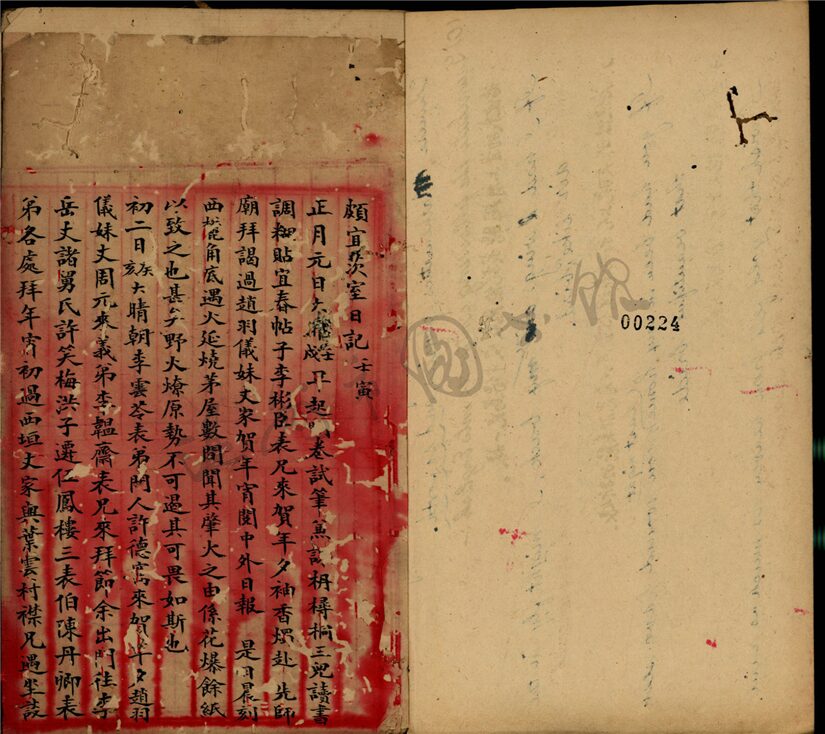 頗宜茨室日記 壬寅
正月元日 大 壬戌 早起 卷試筆 課枬樽桐三兒讀書
調糊貼宜春帖子李彬臣表兄來賀年夕袖香 赴 先師
廟拜謁過趙羽儀妹丈家賀年宵閱中外日報 是日晨刻
西 角底遇火延燒茅屋數間聞其肇火之由係花爆餘紙
以致之也甚矣野火燎原勢不可遏其可畏如斯也
初二日 癸亥 大晴朝李雲苓表弟門人許德 來賀年夕趙羽
儀妹丈周元來義弟李韞齋表兄來拜節余出門往李
岳丈諸舅氏許笑梅洪子遷仁鳳樓三表伯陳丹卿表
弟各處拜年宵初過西垣丈家與葉雲村襟兄遇坐談
00224